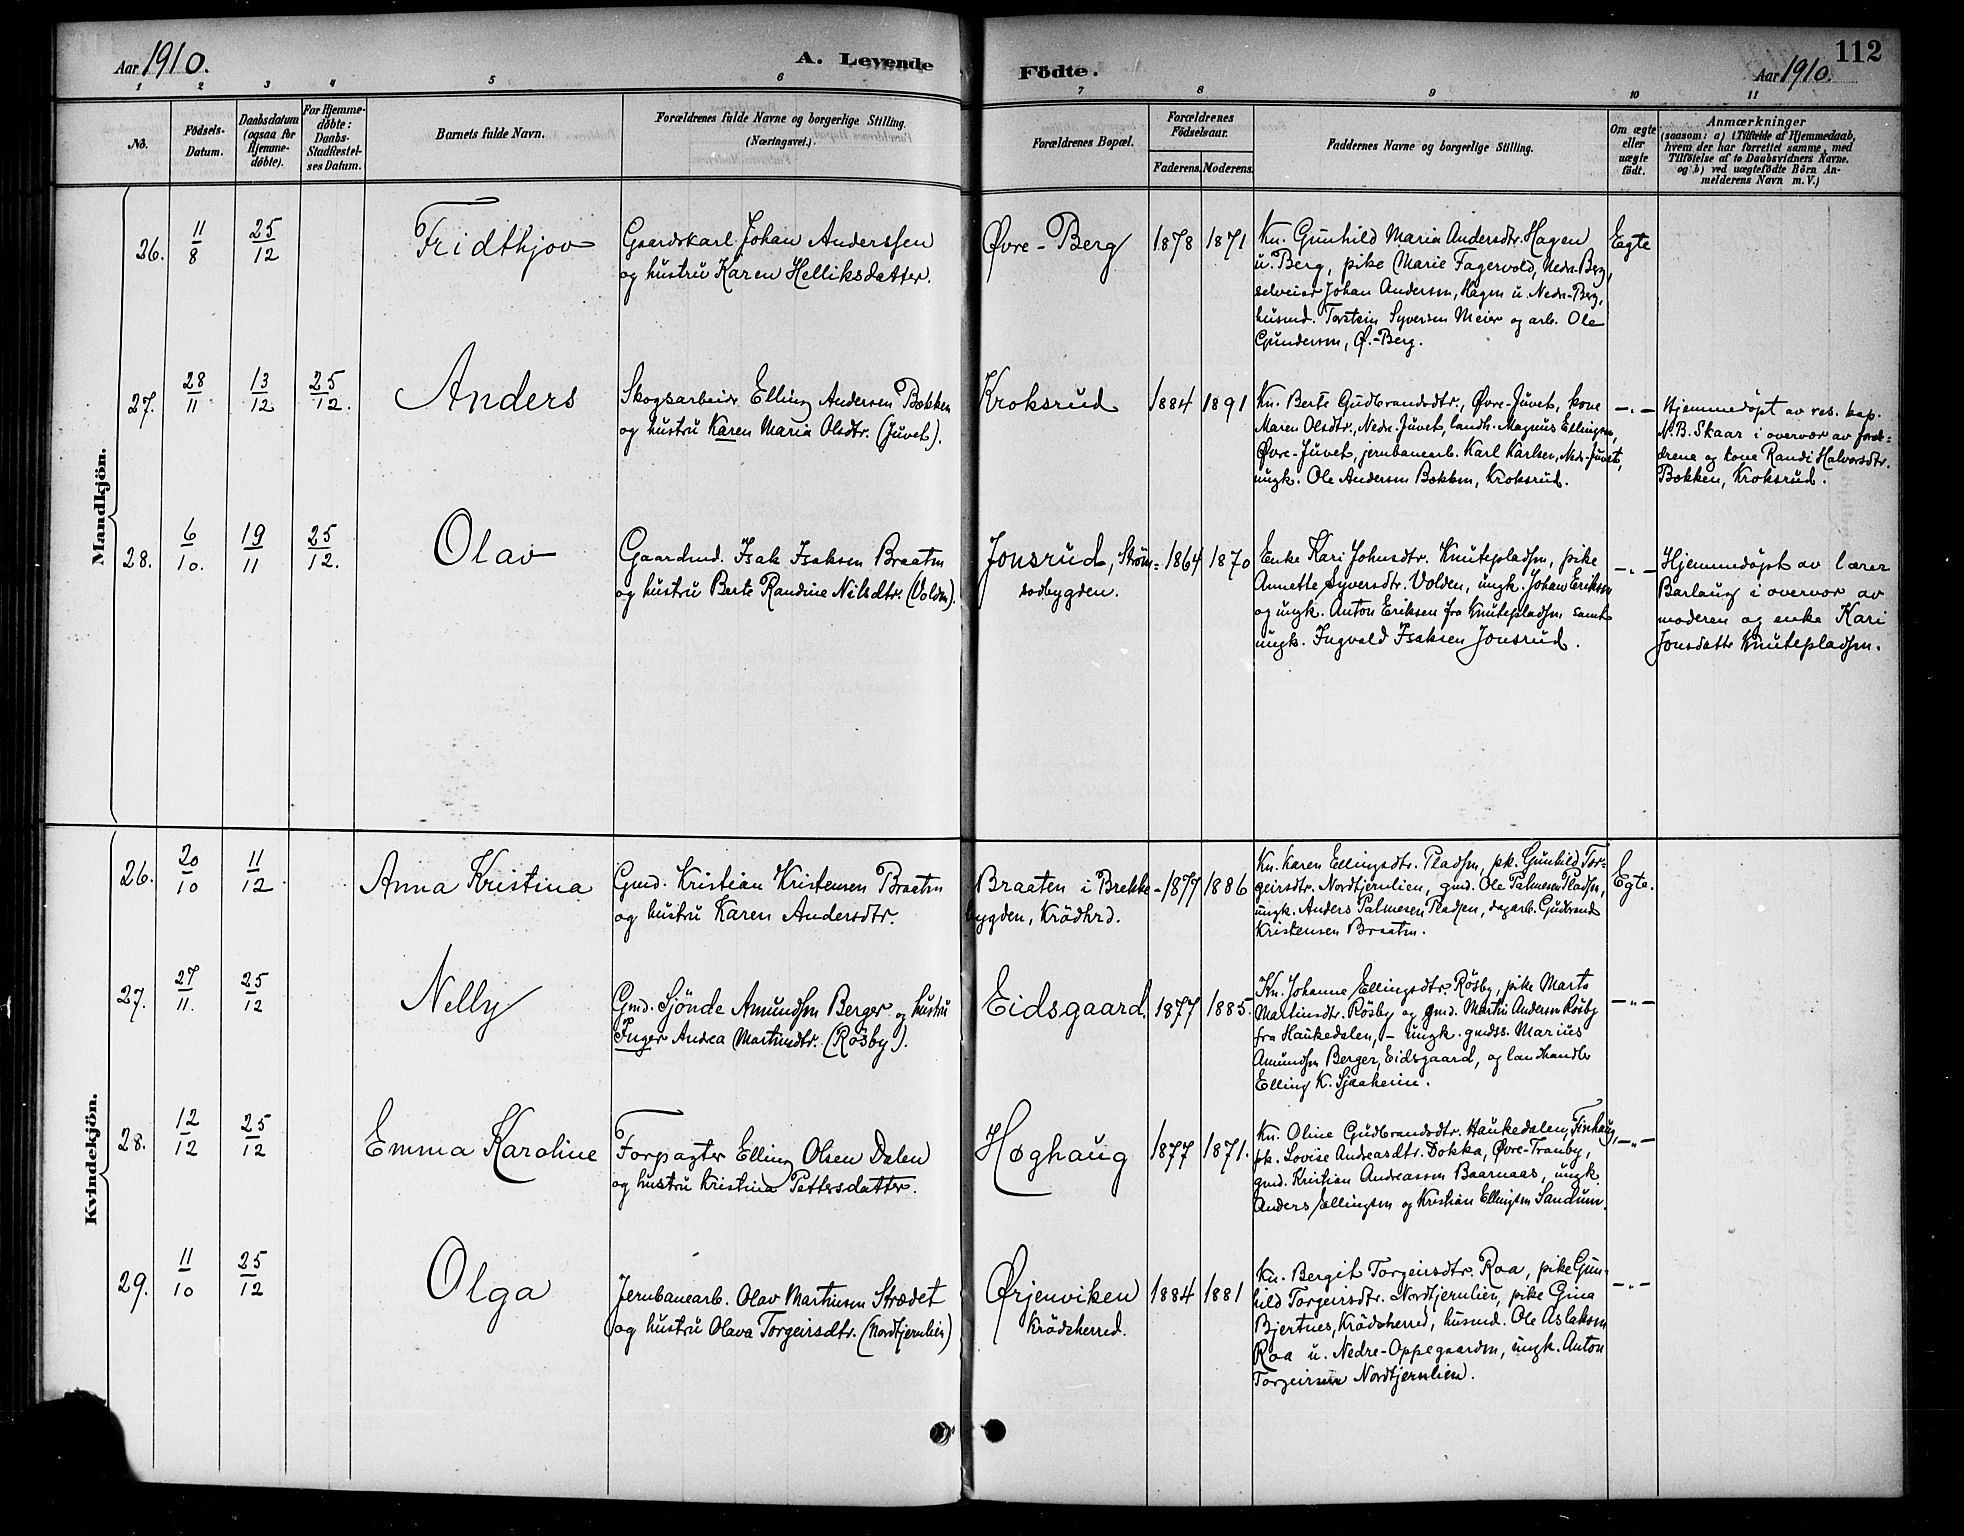 Aar 1910.
A. Levende
Födte.
112
Aar 1910.
1 2 3 4 5 6 7 8 9 10 11
No.
Födsels-
Datum.
Daabsdatum
(ogsaa for
Hjemme-
döbte).
For Hjemme-
döbte:
Daabs-
Stadfæstel-
ses Datum.
Barnets fulde Navn.
Forældrenes fulde Navne og borgerlige Stilling.
(Næringsvei.)
Forældrenes Bopæl.
Forældrenes
Födselsaar.
Faderens. Moderens.
Faddernes Navne og borgerlige Stilling.
Om ægte
eller
uægte
födt.
Anmærkninger
(saasom: a) i Tilfælde af Hjemmedaab,
hvem der har forrettet samme, med
Tilföielse af to Daabsvidners Navne.
og b) ved uægtefödte Börn An-
melderens Navn m. V.)
Mandkjön.
26.
11/8
25/12
Fridthjov
Gaardskarl Johan Anderssen
og hustru Karen Helliksdatter.
Øvre-Berg
1878
1871
Kn. Gunhild Maria Andersdtr. Hagen
u. Berg, pike Marie Fagervold, Nedr.-Berg,
selveier Johan Andersen, Hagen u. Nedr-Berg,
husmd. Torstein Syversen Meier og arb. Ole
Gundersen, Ø.-Berg.
Egte
27.
28/11
13/12
25/12.
Anders
Skogsarbeider Elling Andersen Bakken
og hustru Karen Maria Olsdtr. (Juvet).
Kroksrud
1884
1891
Kn. Berte Gudbrandsdtr., Øvre-Juvet, kone
Maren Olsdtr., Nedr. Juvet, landh. Magnus Ellingsen,
Øvre-Juvet, jernbanearb. Karl Karlsen, Nedr-Juvet,
ungk. Ole Andersen Bakken, Kroksrud.
-"-
Hjemmedøpt av res. kap.
N. B. Skaar i overvær av foræl=
drene og kone Randi Halvorsdtr.
Bakken, Kroksrud.
28.
6/10.
19/11
25/12.
Olav
Gaardmd. Isak Isaksen Braaten
og hustru Berte Randine Nilsdtr. (Volden).
Jonsrud, Strøm=
sodbygden.
1864
1870
Enke Kari Johnsdtr. Knutepladsen, pike
Annette Syversdtr. Volden, ungk. Johan Eriksen
og ungk. Anton Eriksen fra Knutepladsen samt
ungk. Ingvald Isaksen Jonsrud.
-"-
Hjemmedøpt av lærer
Barlaug i overvær av
moderen og enke Kari
Jonsdatter Knutepladsen.
Kvindekjön.
26.
20/10
11/12.
Anna Kristina
Gmd. Kristian Kristensen Braaten
og hustru Karen Andersdtr.
Braaten i Brekke-
bygden, Krödhrd.
1877
1886
Kn. Karen Ellingsdtr. Pladsen, pk. Gunhild Tor=
geirsdtr. Nordtjernlien, gmd. Ole Palmesen Pladsen,
ungk. Anders Palmesen Pladsen, dagarb. Gudbrand
Kristensen Braaten.
Egte.
27.
27/11.
25/12
Nelly
Gmd. Sjönde Amundsen Berger og hustru
Inger Andrea Martinsdtr. (Rösby).
Eidsgaard.
1877
1885.
Kn. Johanne Ellingsdtr. Rösby, pike Marta
Martinsdtr. Rösby og gmd. Martin Andersen Rösby
fra Haukedalen, - ungk. gmds. Marius
Amundsen Berger, Eidsgaard, og landhandler
Elling K. Sjaaheim.
-"-
28.
12/12
25/12
Emma Karoline
Forpagter Elling Olsen Dalen
og hustru Kristina Pettersdatter.
Høghaug
1877
1871.
Kn. Oline Gudbrandsdtr. Haukedalen, Finhaug,
pk. Lovise Andreasdtr. Dokka, Øvre-Tranby,
gmd. Kristian Andreassen Baarnaas, ungk.
Anders Ellingsen og Kristian Ellingsen Sandum.
-"-
29.
11/10
25/12
Olga
Jernbanearb. Olav Martinsen Strædet
og hustru Olava Torgeirsdtr. (Nordtjernlien)
Ørjenviken
Krödsherred.
1884
1881
Kn. Bergit Torgeirsdtr. Roa, pike Gun-
hild Torgeirsdtr. Nordtjernlien, pike Gina
Bjertnes, Krödsherred, husmd. Ole Aslaksen
Roa u. Nedre-Oppegaarden, ungk. Anton
Torgeirsen Nordtjernlien.
-"-